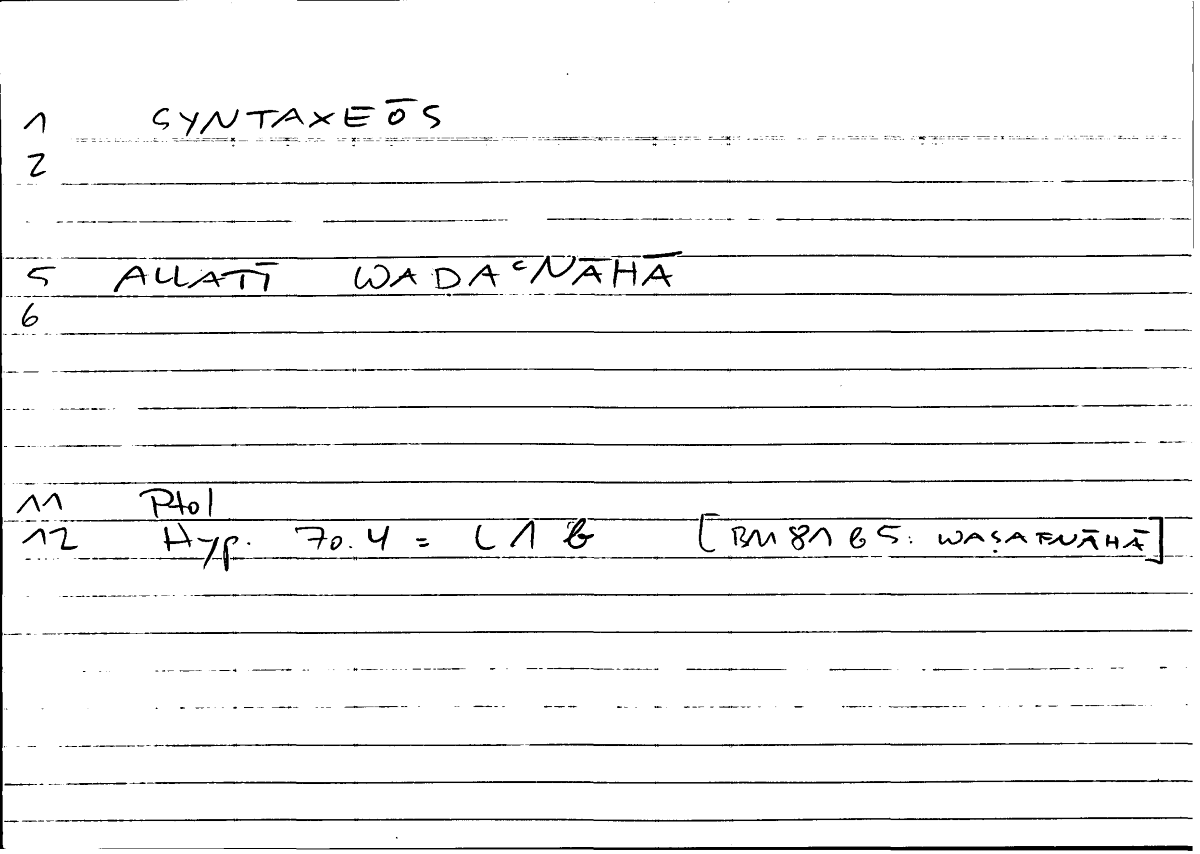 1 SYNTAXEŌS
2
5 ALLATĪ WADAʿNĀHĀ
6
11 Ptol
12 Hyp. 70.4 = L 1 b [BM 81 b 5: WAṢAFNĀHĀ]